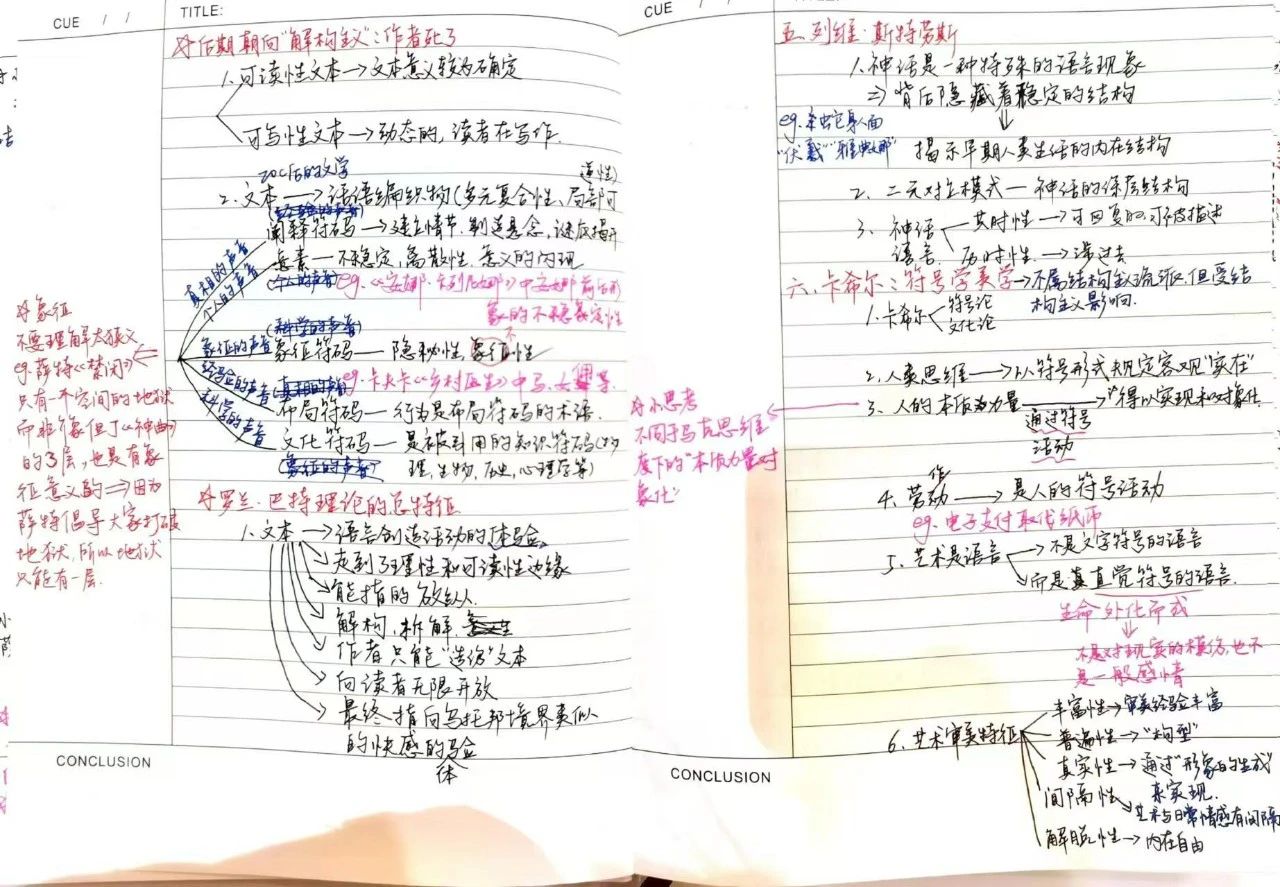 CUE / /
TITLE:
后期朝向"解构主义":作者死了
1.可读性文本→文本意义较为确定
可写性文本→动态的,读者在写作.
20C后的文学
2.文本→话语编织物(多元复合性、局部可
逆性)
阐释符码→建立情节,制造悬念,谜底揭开
真相的声音
个人的声音
意素—不稳定,离散性,意义的闪现
(个人的声音)
eg.《安娜·卡列尼娜》中安娜前后形
象的不稳定性
(科学的声音)
象征的声音
象征符码—隐秘性,不象征性
经验的声音
(真相的声音)
eg.卡夫卡《乡村医生》中马、女
科学的声音
布局符码—行为是布局符码的术语.
文化符码—是被引用的知识符码(物
理,生物,历史,心理学等)
(象征的声音)
象征
不要理解太狭义
eg.萨特《禁闭》
只有一平空间的地狱
而非像但丁《神曲》
的了层,也是有象
征意义的⇒因为
萨特倡导大家打破
地狱,所以地狱
只能有一层.
罗兰·巴特理论的总特征
1.文本→语言创造活动的体验.
→走到了理性和可读性边缘
→能指的放纵
→解构,拆解.
→作者只能"造访"文本
→向读者无限开放
→最终指向乌托邦境界类似
的快感的体验
CONCLUSION
CUE / /
五.列维·斯特劳斯
1.神话是一种特殊的语言现象
⇒背后隐藏着稳定的结构
eg.人面蛇身
"伏羲""雅典娜"
揭示早期人类生活的内在结构
2.二元对立模式—神话的深层结构
3.神话
语言.
共时性→可回复的,可被描述
历时性→讲过去
六.卡希尔:符号学美学→不属结构主义流派,但受结
构主义影响.
1.卡希尔
符号论
文化论
2.人类思维→以符号形式规定客观"实在"
3.人的本质力量→得以实现和对象化
通过符号
活动
小思考
不同于马克思维
度下的"本质力量对
象化"
4.劳作→是人的符号活动
eg.电子支付取代纸币
5.艺术是语言
→不是文字符号的语言
→而是直觉符号的语言.
生命外化形式
不是对现实的模仿,也不
是一般感情
6.艺术审美特征
丰富性→审美经验丰富
普遍性→"构型"
真实性→通过"形象的生成"
来实现.
间隔性→艺术与日常情感有间隔
解脱性→内在自由
CONCLUSION